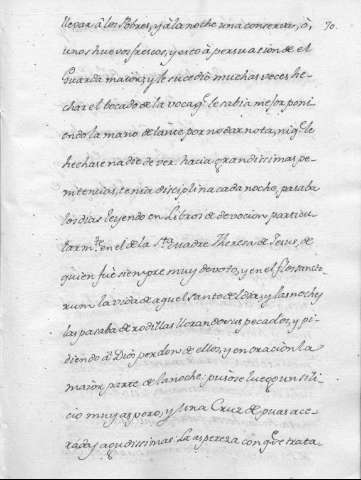 llevar â los Pobres, y â la noche una conserva, ô, 70.
unos huevos frescos, y esto â persuasion de el
Guarda maior, y le sucediô muchas veces he-
char el bocado de la voca q.e le sabia mejor poni
endo la mano delante por no dar nota, ni q.e le
hechase nadie de ver. hacia grandissimas pe-
nitencias, tenia disciplina cada noche, pasaba
los dias leyendo en Libros de devocion particu
larm.te en el de la S.ta Madre Theresa de Jesus, de
quien fue siempre muy devoto, y en el flos sancto
rum la vida de aquel santo del dia, y las noches
las pasaba de rodillas llorando sus pecados, y pi-
diendo â Dios perdon de ellos, y en oracion la
maior parte de la noche: pusose luego un sili-
cio muy aspero, y una Cruz de puas ace-
radas agudissimas. La aspereza con que trata-